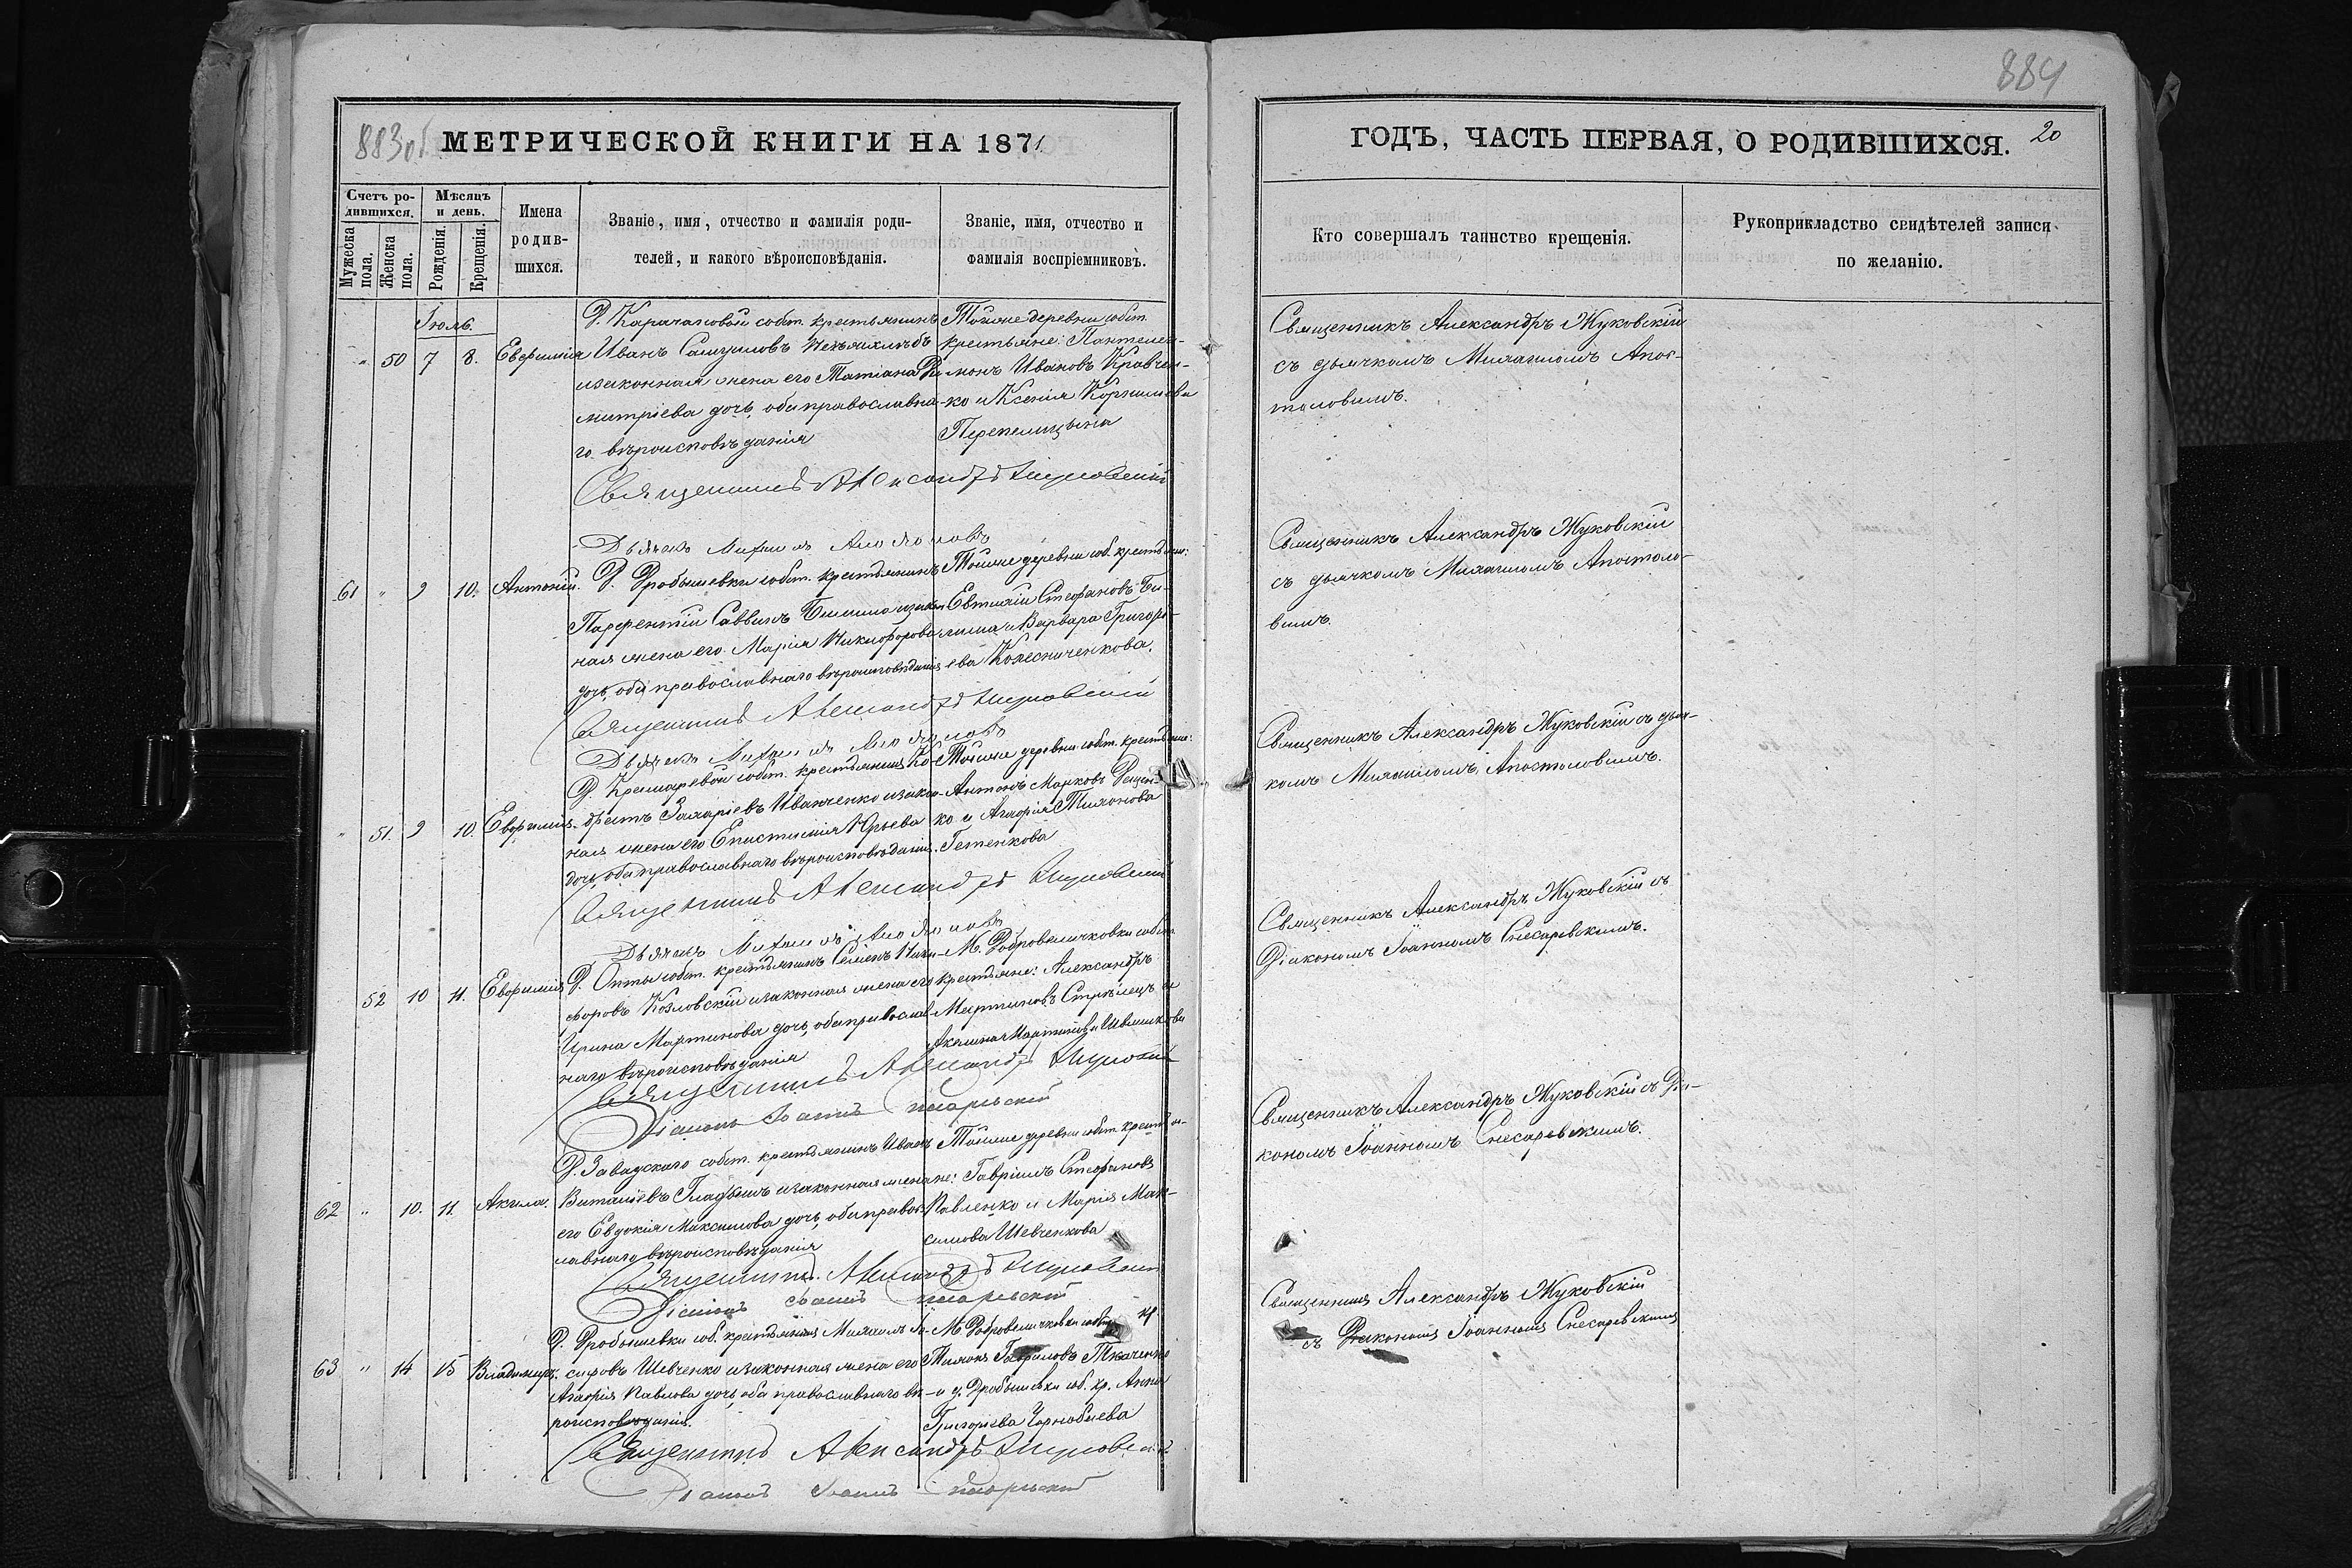 883об
МЕТРИЧЕСКОЙ КНИГИ НА 1871
Счетъ родившихся.
Мужеска пола.
Женска пола.
Мѣсяцъ и день.
Рожденія.
Крещенія.
Имена родившихся.
Званіе, имя, отчество и фамилія родителей, и какого вѣроисповѣданія.
Званіе, имя, отчество и фамилія воспріемниковъ.
Іюль.
" 50 7 8. Евфимія
собст. крестьянинъ
Иванъ Самуиловъ
и законная жена его Татіана Ди-
митріева дочь, оба православна-
го вѣроисповѣданія
Тойже деревни собст.
крестьяне: Пантелеи-
монъ Ивановъ Кравчен-
ко и Ксенія Корнилиева
Перепелицына
Священникъ Александръ Жуковскій
Дьячекъ Михаилъ Апостоловъ
61 " 9 10. Антоній.
Д. Дробышевки собст. крестьянинъ
Парфентій Саввинъ и закон-
ная жена его Марія Никифорова
дочь, оба православнаго вѣроисповѣданія
Тойже деревни соб. крестьяне:
Евтихій Стефановъ
и Варвара Григорі-
ева Колесниченкова.
Священникъ Александръ Жуковскій
Дьячекъ Михаилъ Апостоловъ
" 51. 9 10. Евфимія.
собст. крестьянинъ Ко-
дратъ Захаріевъ Иванченко и закон-
ная жена его Епистимія Юрьева
дочь, оба православнаго вѣроисповѣданія.
Тойже деревни собст. крестьяне:
Антонъ Марковъ
ко и Агафія Тихонова
Гетенкова
Священникъ Александръ Жуковскій
Дьячекъ Михаилъ Апостоловъ
52 10 11. Евфимія
собст. крестьянинъ Семенъ Ники-
форовъ Козловскій и законная жена его
Ирина Мартинова дочь, оба православ-
наго вѣроисповѣданія
М. Добровеличковки собст.
крестьяне: Александръ
Мартиновъ Стрѣлецъ и
Акелина Мартинова
Священникъ Александръ Жуковскій
Діаконъ Іоаннъ Снесаревскій
62 " 10. 11. Акила.
Д. Завадскаго собст. крестьянинъ Иванъ
Виталіевъ Гладышъ и законная жена
его Евдокія Максимова дочь, оба правос-
лавнаго вѣроисповѣданія
Тойже деревни собст. крестья-
не: Гавріилъ Стефановъ
Павленко и Марія Мак-
симова Шевченкова
Священникъ Александръ Жуковскій
Діаконъ Іоаннъ Снесаревскій
63 " 14 15 Владимиръ.
Д. Дробышевки соб. крестьянинъ Михаилъ Іо-
сифовъ Шевченко и законная жена его
Агафія Павлова дочь, оба православнаго вѣ-
роисповѣданія.
М. Добровеличковки собст. кр.
Тихонъ Гавриловъ Ткаченко
и д. Дробышевки соб. кр. Анна
Григоріева Чорнобаева
Священникъ Александръ Жуковскій
Діаконъ Іоаннъ Снесаревскій
884
ГОДЪ, ЧАСТЬ ПЕРВАЯ, О РОДИВШИХСЯ. 20
Кто совершалъ таинство крещенія.
Рукоприкладство свидѣтелей записи
по желанію.
Священникъ Александръ Жуковскій
съ дьячкомъ Михаиломъ Апос-
толовымъ.
Священникъ Александръ Жуковскій
съ дьячкомъ Михаиломъ Апостоло-
вымъ.
Священникъ Александръ Жуковскій съ дьяч-
комъ Михаиломъ Апостоловымъ.
Священникъ Александръ Жуковскій съ
Діакономъ Іоанномъ Снесаревскимъ.
Священникъ Александръ Жуковскій съ Діа-
кономъ Іоанномъ Снесаревскимъ.
Священникъ Александръ Жуковскій
съ Діакономъ Іоанномъ Снесаревскимъ